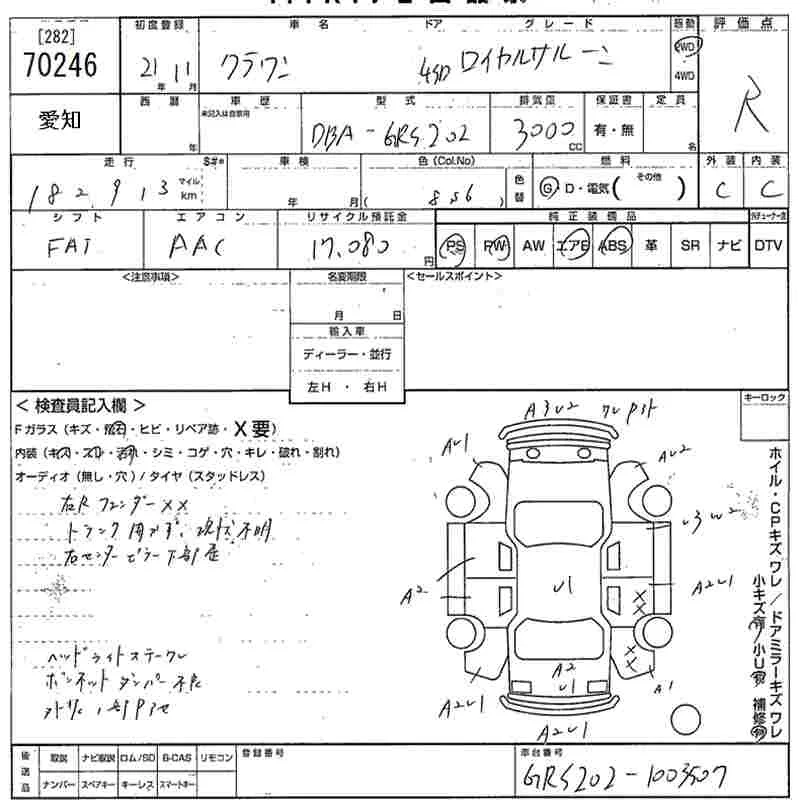 [282]
70246
初度登録
車名
ドア
グレード
駆動
評価点
21年 11月
クラウン
4SD
ロイヤルサルーン
2WD
4WD
R
愛知
西暦
年
車歴
未記入は自家用
型式
DBA-GRS202
排気量
3000
CC
保証書
有・無
定員
名
走行
S#*
車検
色(Col.No)
燃料
外装
内装
182,913
マイル
km
年
月
( 856 )
色替
G・D・電気( その他 )
C
C
シフト
エアコン
リサイクル預託金
純正装備品
FAT
AAC
17,080
円
PS
PW
AW
エアB
ABS
革
SR
ナビ
DTV
<注意事項>
名変期限
<セールスポイント>
月
日
輸入車
ディーラー・並行
左H ・ 右H
キーロック
< 検査員記入欄 >
Fガラス(キズ・飛石・ヒビ・リペア跡・X要)
内装(キズ・スレ・汚れ・シミ・コゲ・穴・キレ・破れ・割れ)
オーディオ(無し・穴)/タイヤ(スタッドレス)
右Rフェンダー××
トランク開かず、現状不明
右センターピラー下部歪
ヘッドライトステーワレ
ボンネットダンパー不良
A3U2
AU1
AU2
U3W2
A2
U1
A2U1
××
××
A2
U1
A2U1
A1
A2U1
ホイル・CPキズワレ/ドアミラーキズワレ
小キズ有/小U有 補修有
後送品
取説
ナビ取説
ロム/SD
B-CAS
リモコン
ナンバー
スペアキー
キーレス
スマートキー
登録番号
車台番号
GRS202-1003507